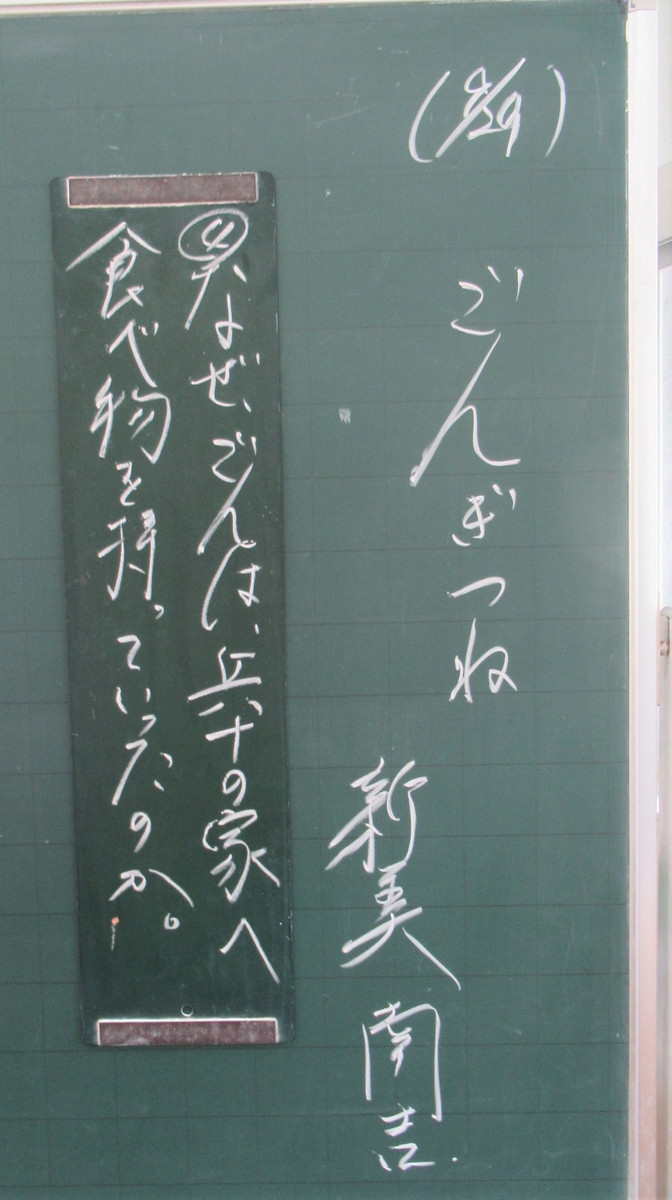 ごんぎつね
新美 南吉
なぜ、ごんは、兵十の家へ
食べ物を持っていったのか。